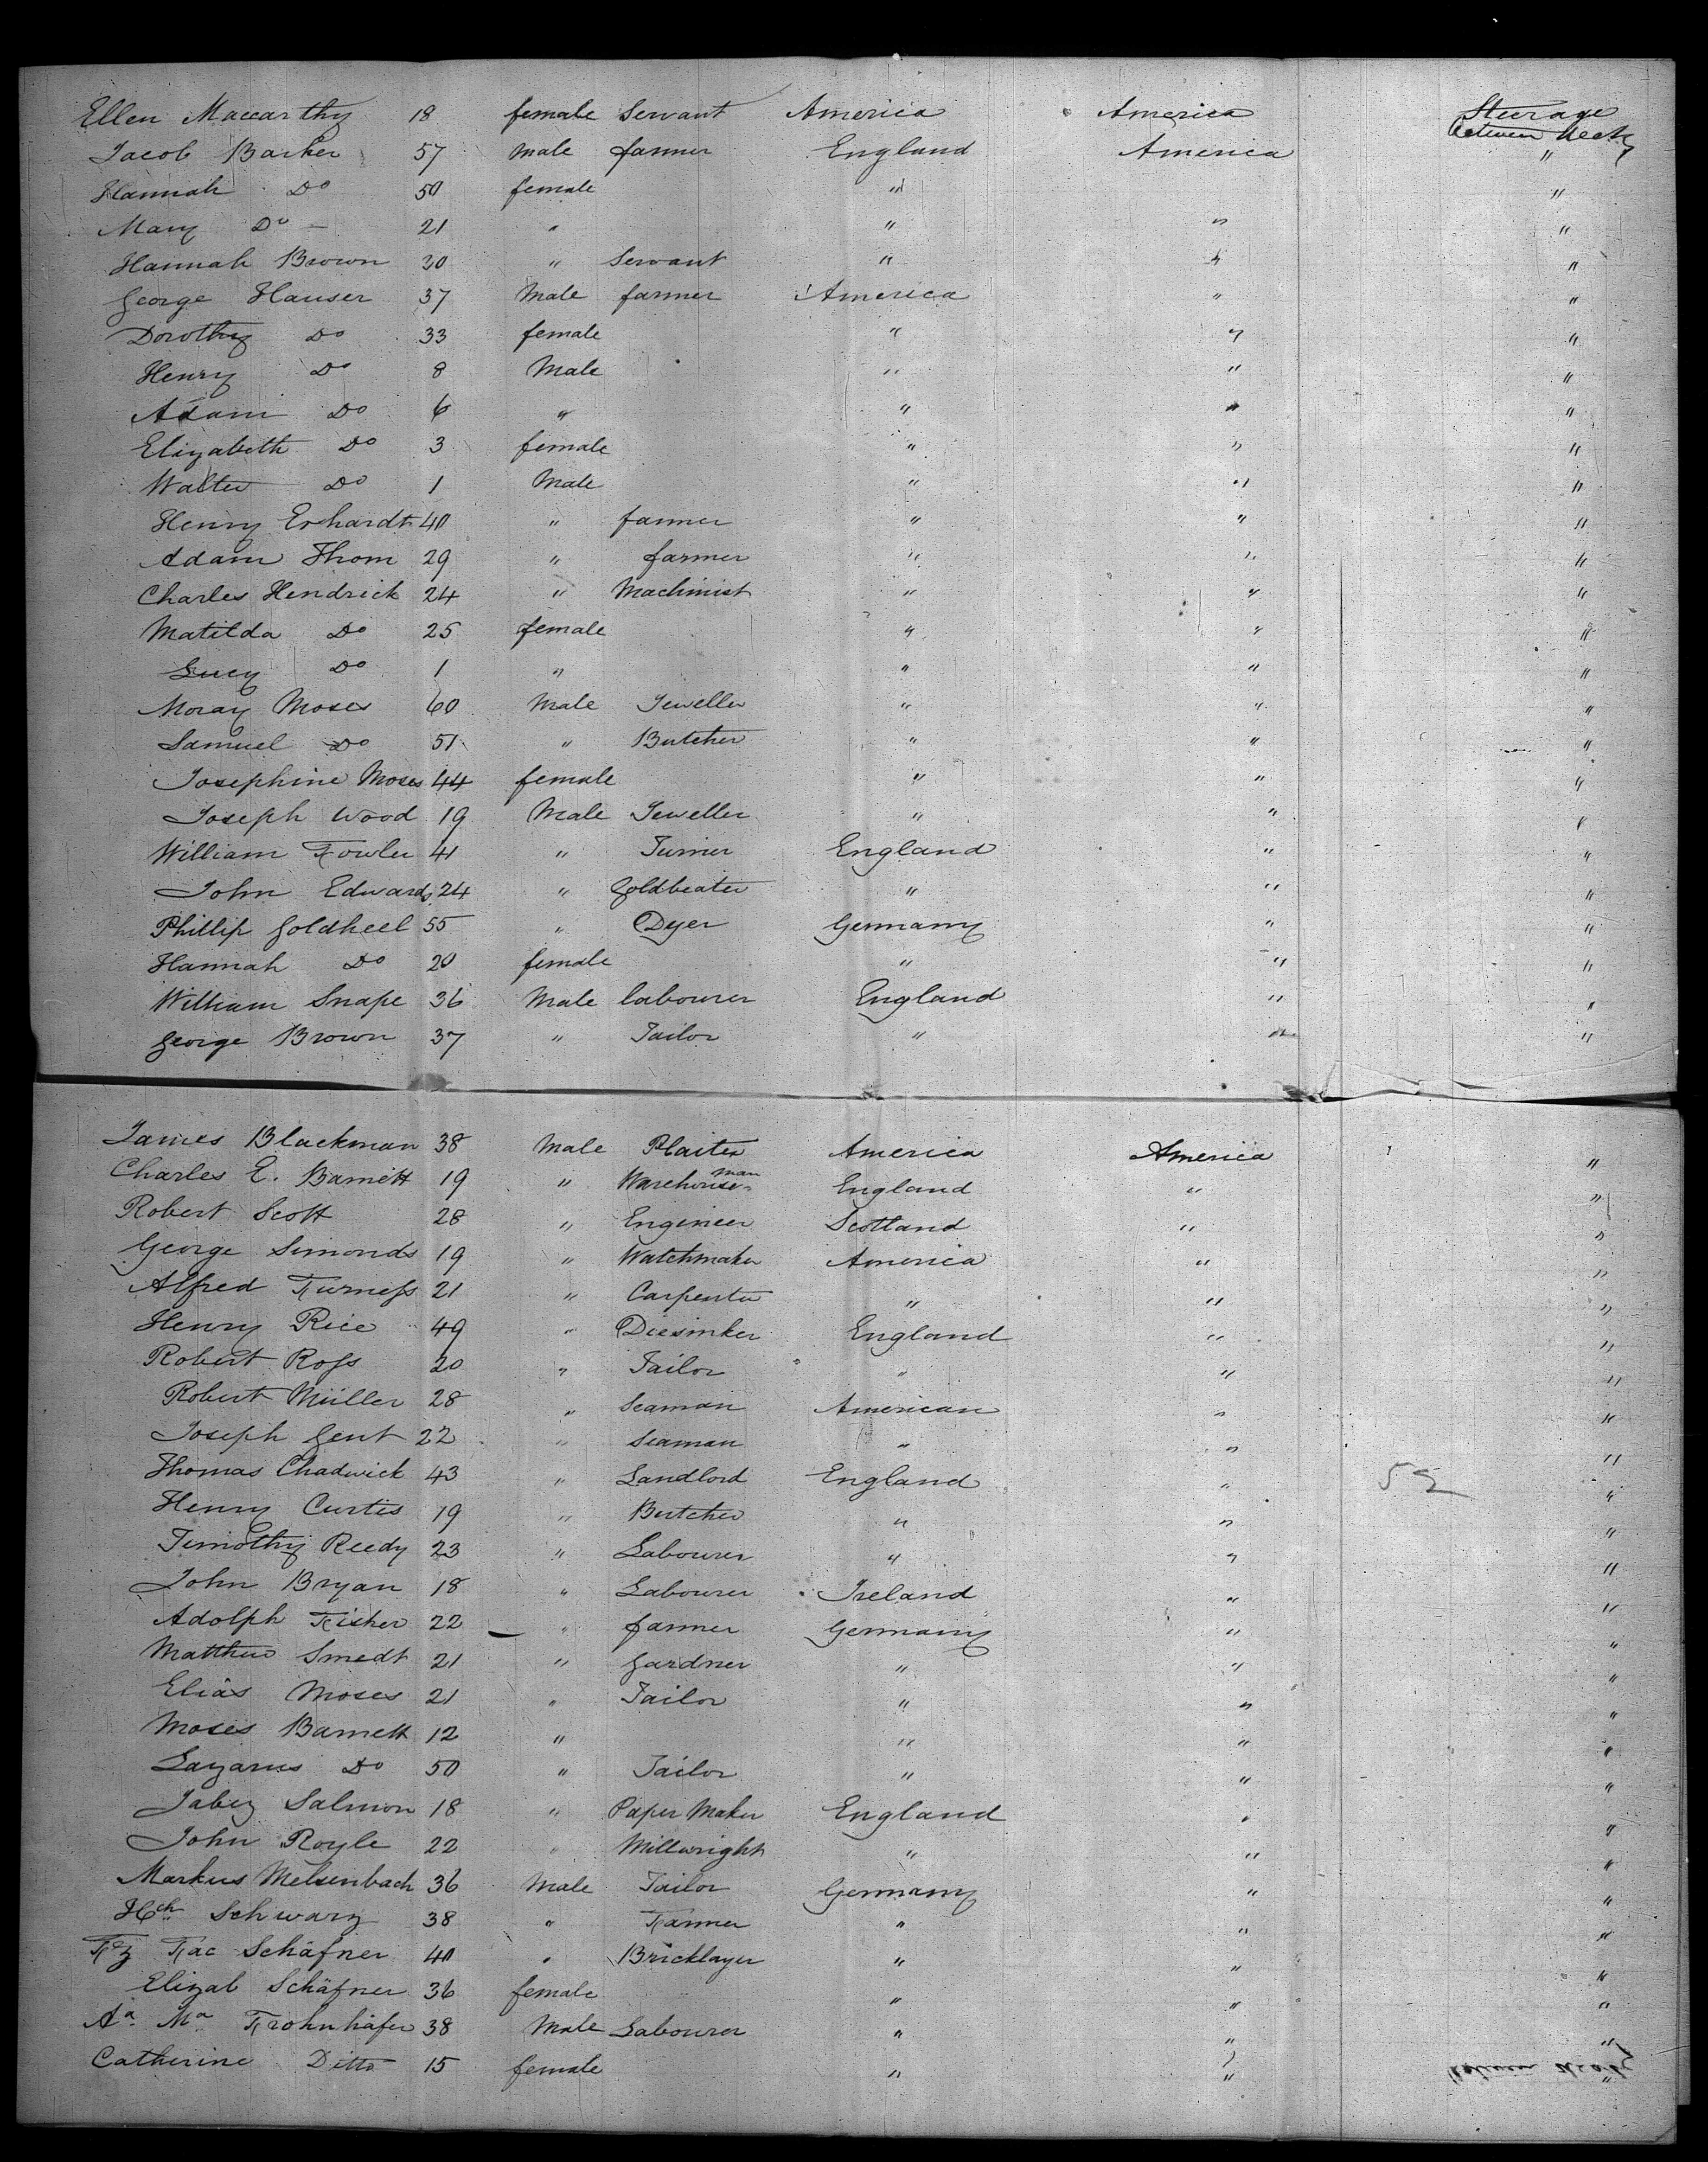 Ellen Maccarthy 18 female Servant America America Steerage
between Decks
Jacob Barker 57 Male farmer England America "
Hannah Do 50 female " "
Mary Do - 21 " " " "
Hannah Brown 30 " Servant " " "
George Hauser 37 Male farmer America " "
Dorothy Do 33 female " " "
Henry Do 8 Male " " "
Adam Do 6 " " " "
Elizabeth Do 3 female " " "
Walter Do 1 Male " " "
Henry Erhardt 40 " farmer " " "
Adam Thom 29 " farmer " " "
Charles Hendrick 24 " Machinist " " "
Matilda Do 25 female " " "
Lucy Do 1 " " " "
Moray Moses 60 Male Jeweller " " "
Samuel Do 51 " Butcher " " "
Josephine Moses 44 female " " "
Joseph Wood 19 Male Jeweller " " "
William Fowler 41 " Turner England " "
John Edwards 24 " Goldbeater " " "
Phillip Goldheel 55 " Dyer Germany " "
Hannah Do 20 female " " "
William Snape 36 Male labourer England " "
George Brown 37 " Tailor " " "
James Blackman 38 Male Plaiter America America "
Charles E. Barnett 19 " Warehouseman England " "
Robert Scott 28 " Engineer Scotland " "
George Simonds 19 " Watchmaker America " "
Alfred Furness 21 " Carpenter " " "
Henry Rice 49 " Diesinker England " "
Robert Ross 20 " Tailor " " "
Robert Müller 28 " Seaman American " "
Joseph Gent 22 " Seaman " " "
Thomas Chadwick 43 " Landlord England " 52 "
Henry Curtis 19 " Butcher " " "
Timothy Reedy 23 " Labourer " " "
John Bryan 18 " Labourer Ireland " "
Adolph Fisher 22 " farmer Germany " "
Matthew Smedt 21 " Gardner " " "
Elias Moses 21 " Tailor " " "
Moses Barnett 12 " " " "
Lazarus Do 50 " Tailor " " "
Jabez Salmon 18 " Paper Maker England " "
John Royle 22 " Millwright " " "
Markus Melsenbach 36 Male Tailor Germany " "
Hch Schwarz 38 " Farmer " " "
Fz Fac Schäfner 40 " Bricklayer " " "
Elizab Schäfner 36 female " " "
Aa. Ma Frohnhäfer 38 Male Labourer " " "
Catherine Ditto 15 female " " "
between decks